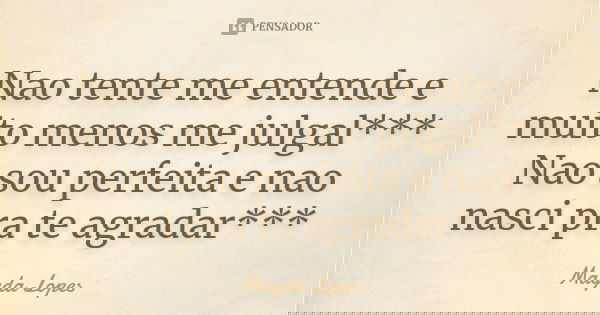 PENSADOR
Nao tente me entende e
muito menos me julgal***
Nao sou perfeita e nao
nasci pra te agradar***
Magda Lopes